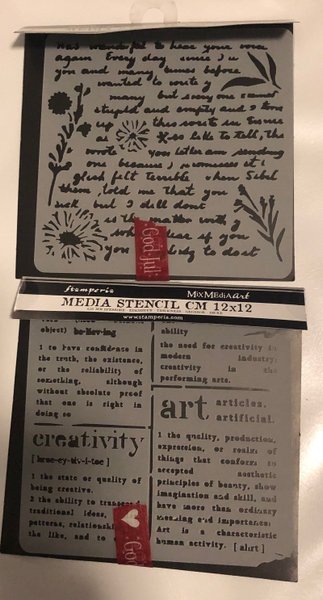 was wonderful to hear your voice
again Every day since I
you and many times before
wanted to write
many but
stupid and empty and I love
up this wrote in
as like to tell, the
wrote your letter am sending
one because I promised it!
felt terrible when Sibel
them told me that you
sick but I still dont
is the matter with
if you
you to dost
God Jul
Stamperia
MixMediaArt
MEDIA STENCIL CM 12x12
www.stamperia.com
object) be·liev·ing
1 to have confidence in
the truth, the existence,
or the reliability of
something, although
without absolute proof
that one is right in
doing so
creativity
1 the state or quality of
being creative.
2 the ability to
traditional ideas,
patterns,
the like, and to
ability
the need for creativity in
modern industry;
creativity in the
performing arts.
art articles.
artificial.
1 the quality, production,
expression, or realm of
things that conform to
accepted aesthetic
principles of beauty, show
imagination and skill, and
have more than ordinary
meaning and importance:
Art is a characteristic
human activity. [ahrt]
God